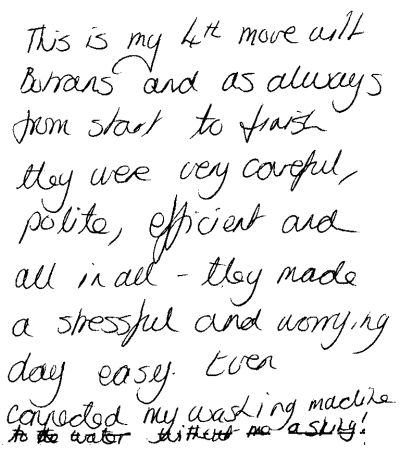 This is my 4th move with
Britrans and as always
from start to finish
they were very careful,
polite, efficient and
all in all - they made
a stressful and worrying
day easy. Even
connected my washing machine
to the water without me asking!